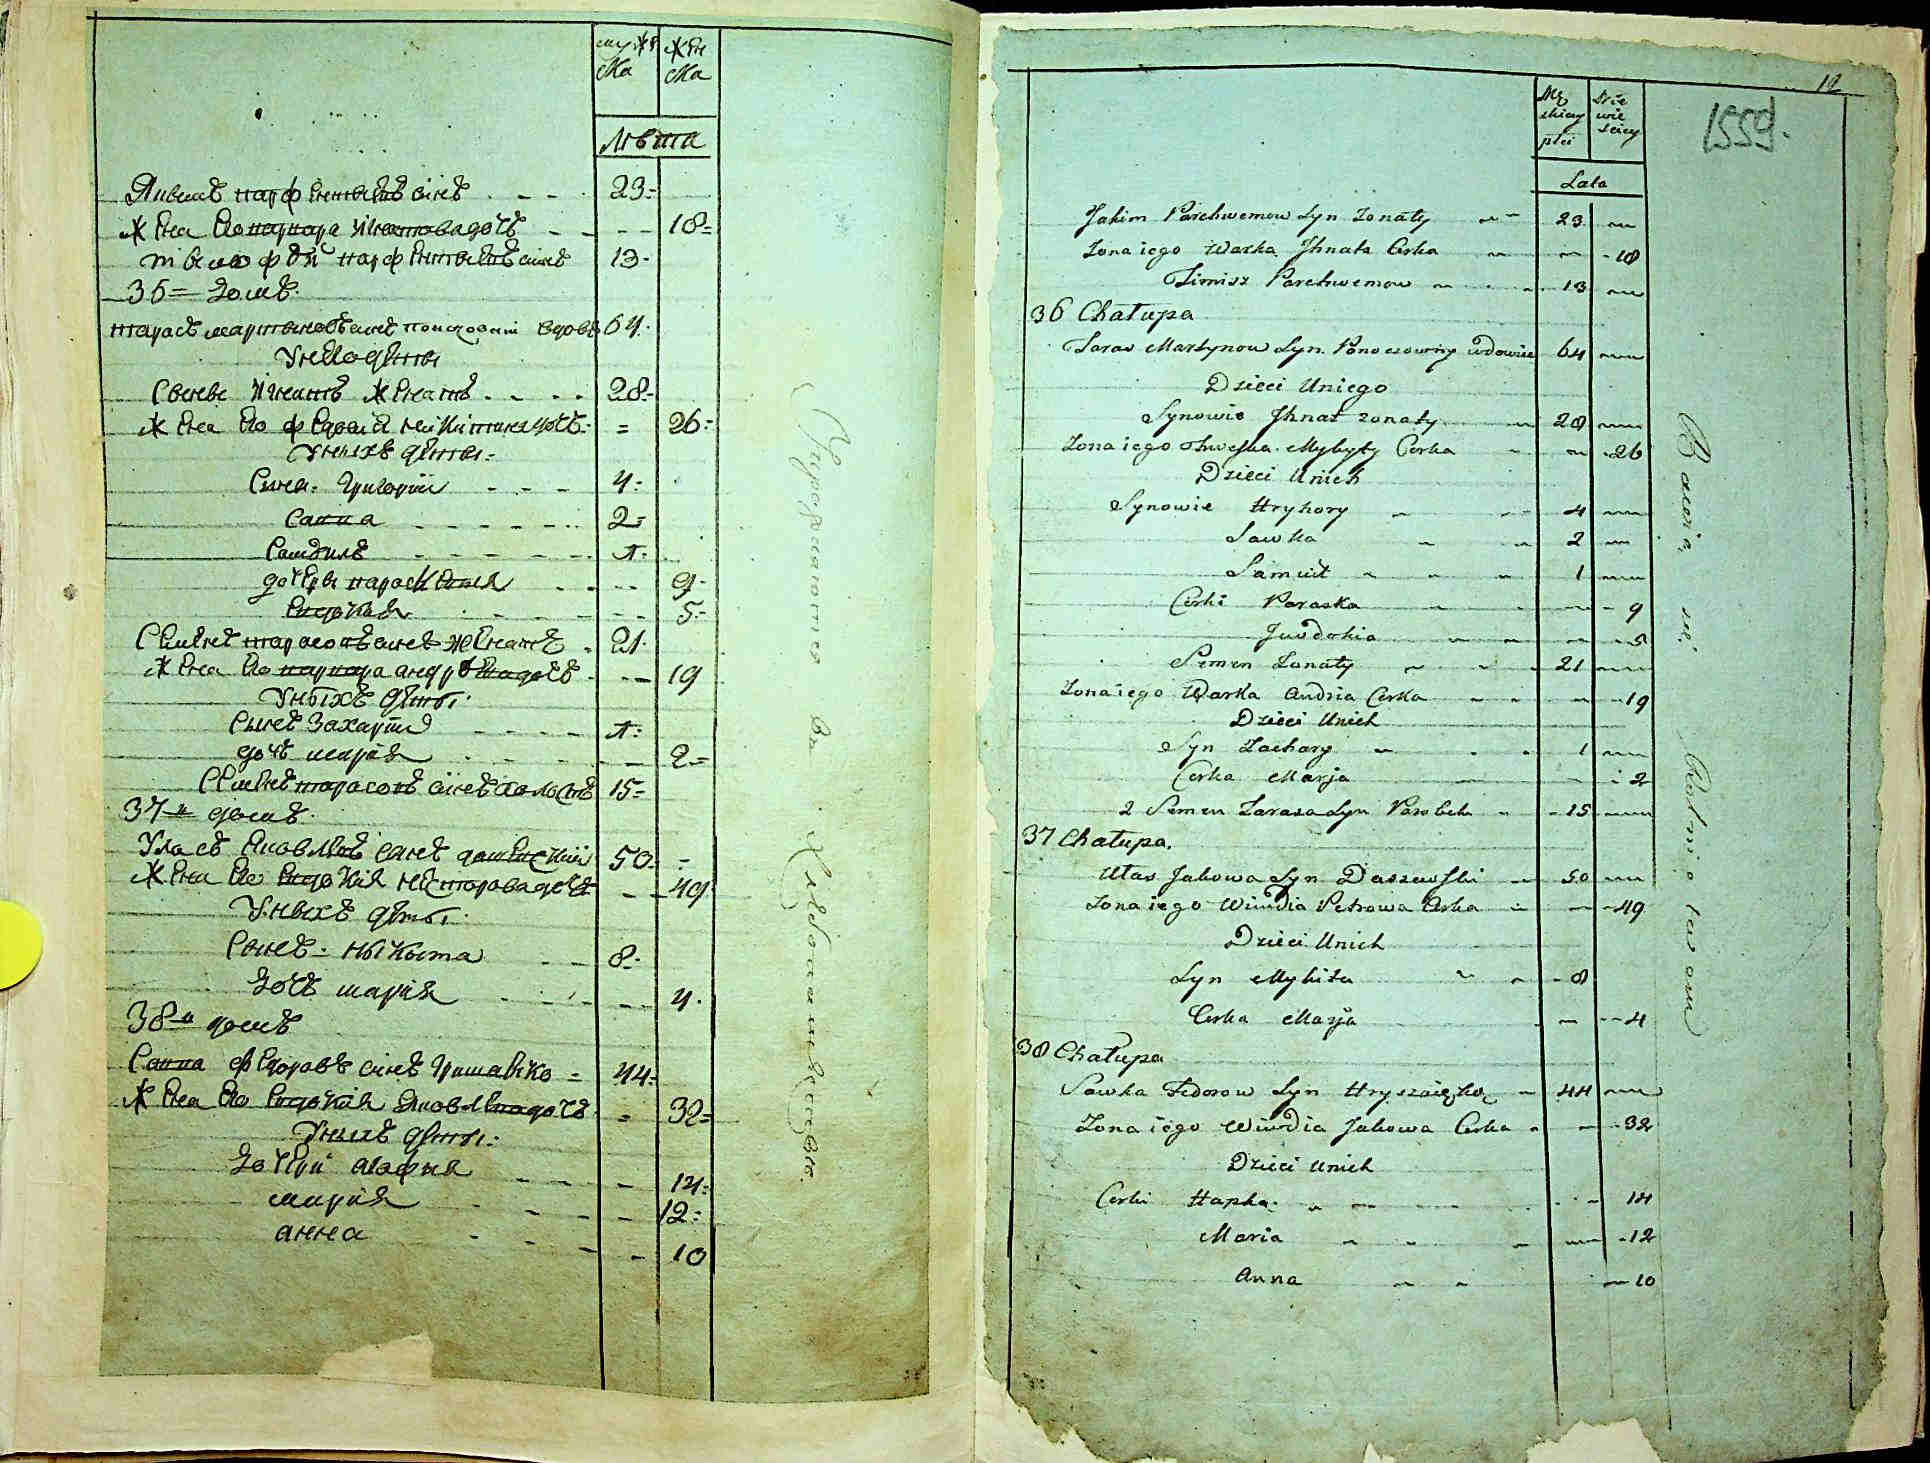 мужс
ка
женс
ка
Лѣта
Якимъ парфентьевъ синъ 23
Жена его варвара Игнатова дочъ 18
тимофѣй парфентьевъ синъ 13
36 домъ
тарасъ мартиновъ синъ вдовъ 64
у него дѣти
Синове Игнатъ женатъ 28
Жена его никитина дочъ 26
у нихъ дѣти
Сини Григорій 4
Савва 2
Самуилъ 1
дочери параскевия 9
Евдокия 5
Семенъ тарасовъ синъ женатъ 21
Жена его варвара андрѣева дочъ 19
у ныхъ дѣты
Сынъ Захарій 1
дочъ марія 2
Семенъ тарасовъ синъ холостъ 15
37й домъ
Уласъ Яковлевъ синъ дашевскій 50
Жена его Евдокия дочъ 49
у ныхъ дѣты
Синъ Мыкыта 8
Дочъ марія 4
38й домъ
Савва федоровъ синъ Гришавко 44
Жена его Евдокия Яковлева дочъ 32
у нихъ дѣти
Дочери агафия 14
марія 12
анна 10
Упражняются въ хлѣбопашествѣ
12
1559.
Męskiey
płci
Lata
Jakim Parchwemow Syn Zonaty 23
Zona iego Warka Jhnata Corka 18
Timisz Parchwemow 13
36 Chałupa
Taras Martynow Syn wdowiec 64
Dzieci Uniego
Synowie Jhnat zonaty 28
Zona iego Mykyty Corka 26
Dzieci Unich
Synowie Hryhory 4
Sawka 2
Samuił 1
Corki Paraska 9
Juwdokia 5
Semen Zonaty 21
Zona iego Warka Andria Corka 19
Dzieci Unich
Syn Zachary 1
Corka Marja 2
2 Semen Tarasa Syn Parobek 15
37 Chałupa.
Ułas Jakowa Syn Daszewski 50
Zona iego Wiwdia Petrowa Corka 49
Dzieci Unich
Syn Mykita 8
Corka Marja 4
38 Chałupa
Sawka Fedorow Syn 44
Zona iego Wiwdia Jakowa Corka 32
Dzieci Unich
Corki Hapka 14
Maria 12
Anna 10
Bawią się Rolnictwem